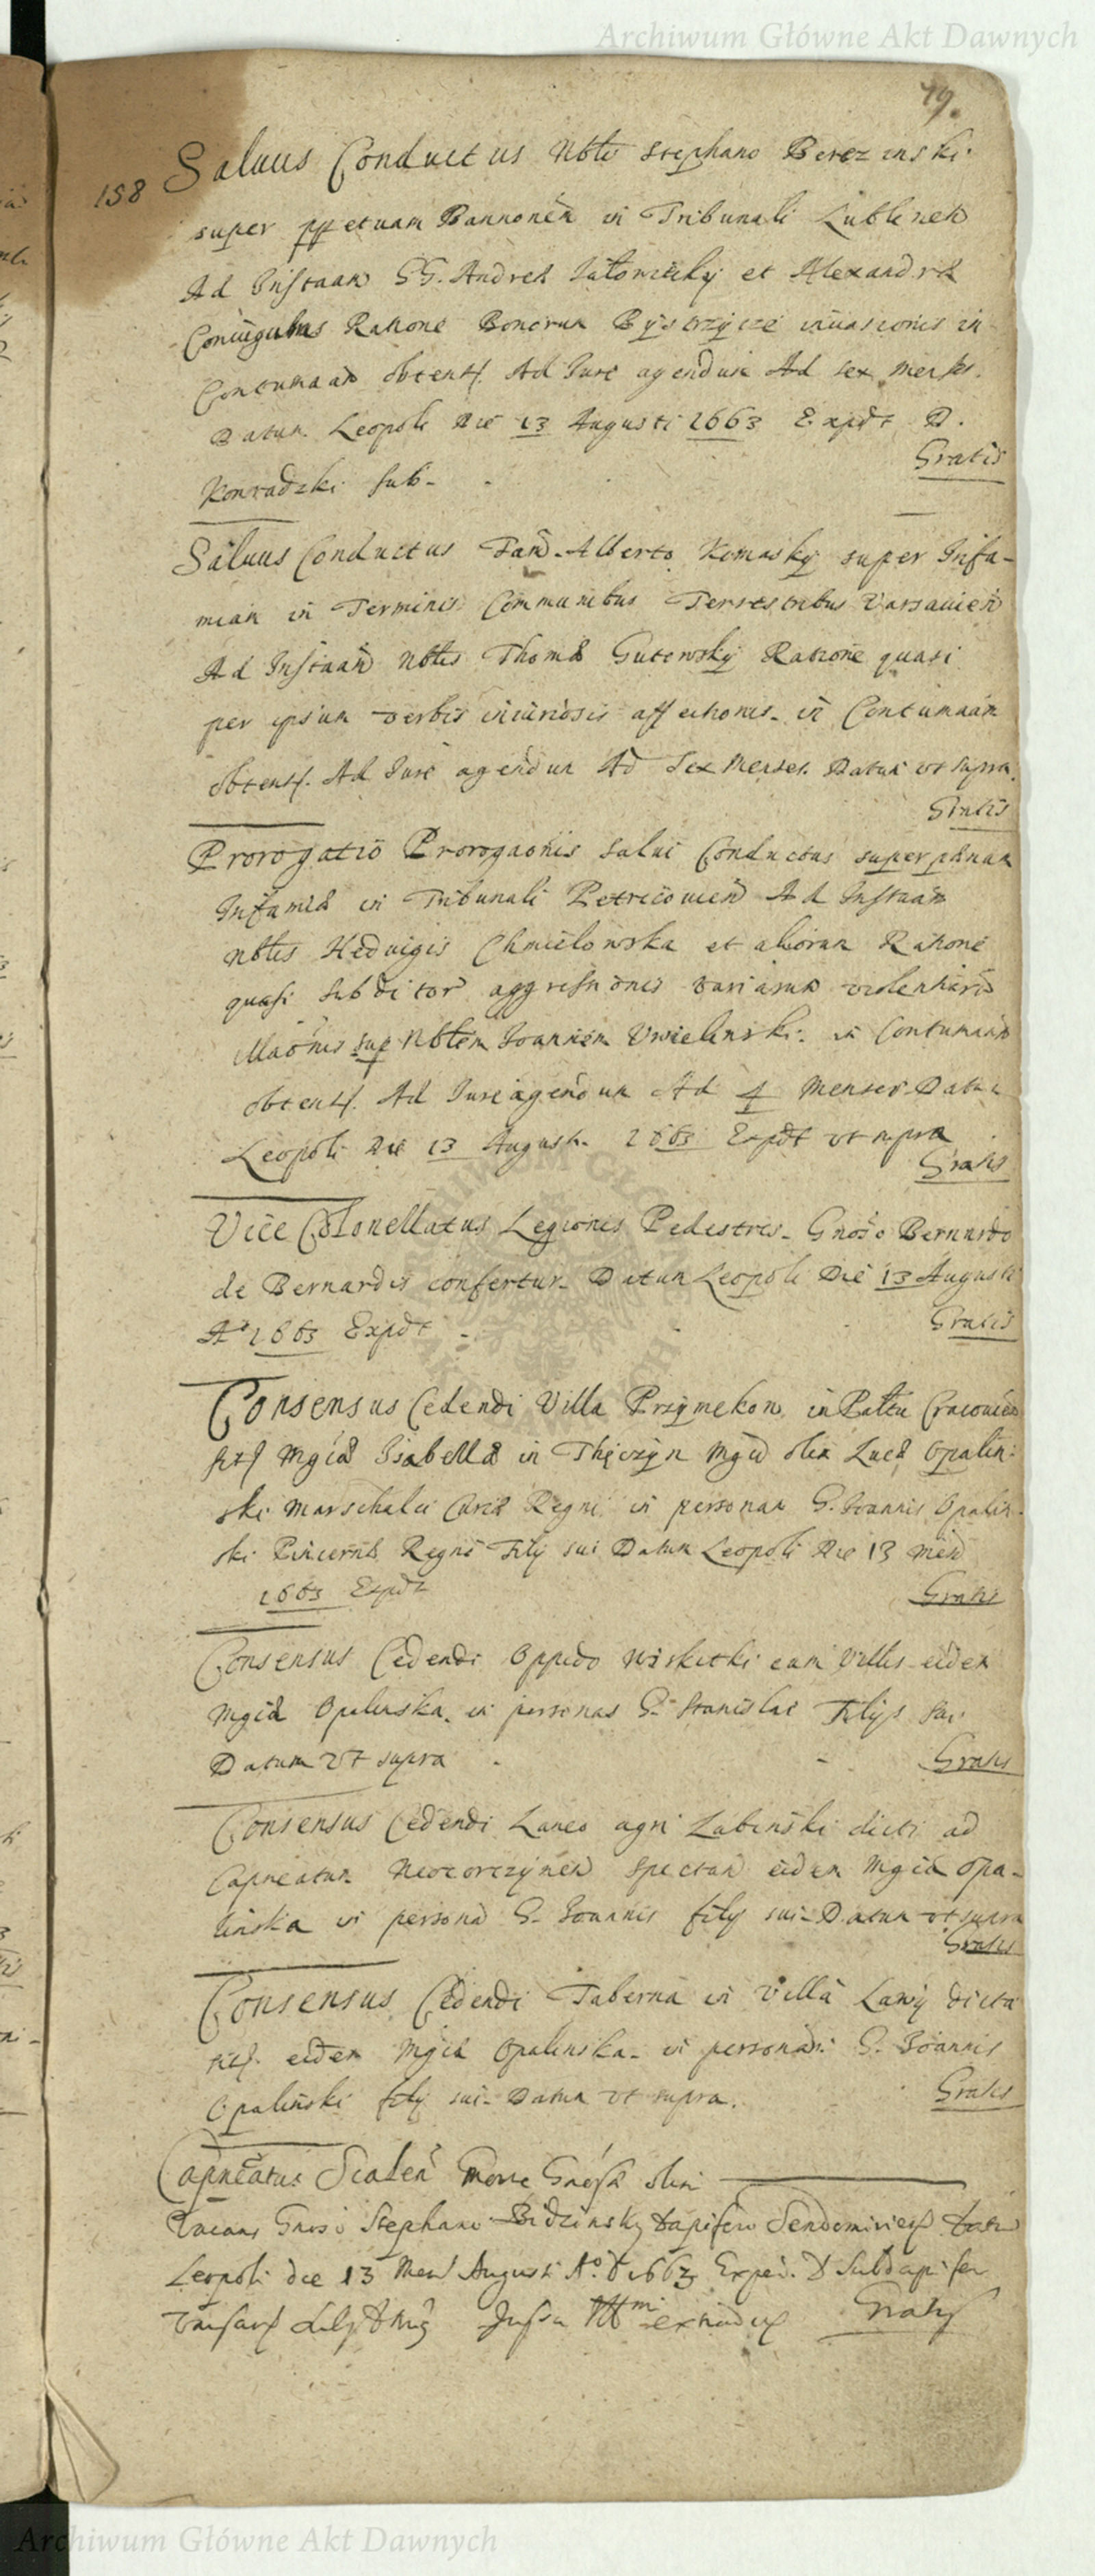 Archiwum Główne Akt Dawnych
79.
158 Saluus Conductus Nbli Stephano Berezinski
super ppetuam Bannonem in Tribunali Lublinen
Ad Instaan GG. Andreæ et Alexandræ
Coniugubus Ratione Bonorum Bystrzyce inuasionis in
Contumaan obtent. Ad Iure agendum Ad sex mens.
Datum Leopoli Die 13 Augusti 1663 Expdt D.
Gratis
Konradzki sub-
Saluus Conductus Fam. Alberto Komasky super Infa-
miam in Terminis Communibus Terrestribus Varsauien
Ad Instaan Nblis Thomæ Gutowsky Ratione quasi
per ipsum verbis iniuriosis affectionis in Contumaan
obtent. Ad Iure agendum Ad Sex Menses. Datum vt supra.
Gratis
Prorogatio Prorogaonis Salui Conductus super pænam
Infamiæ in Tribunali Petricouien Ad Instaan
Nblis Heduigis Chmielowska et aliorum Ratione
quasi Subditor aggressionis variarum violentiaru
illaonis sup Nblem Ioannem Vwielinski in Contumaan
obtent. Ad Iure agendum Ad 4 Menses Datum
Leopoli Die 13 Augusti 1663 Expdt vt supra
Gratis
Vice Colonellatus Legionis Pedestris Gnoso Bernardo
de Bernardis confertur Datum Leopoli Die 13 Augusti
Aº 1663 Expdt
Gratis
Consensus Cedendi Villa Przymekow in Pallu Cracouien
sit Mgcæ Isabellæ in Thęczyn Mgci olim Lucæ Opalin-
ski Marschalci Curiæ Regni in personam G. Ioannis Opalin-
ski Pincernæ Regni Filij sui Datum Leopoli Die 13 Men
1663 Expdt
Gratis
Consensus Cedendi Oppido Wiskitki cum Villis eidem
Mgcæ Opalinska in personas G. Stanislai Filijs sui
Datum vt supra
Gratis
Consensus Cedendi Laneo agri Labinski dicti ad
Capneatum Neocorczynen spectan eidem Mgcæ Opa-
linska in persona G. Ioannis filij sui Datum vt supra
Gratis
Consensus Cedendi Taberna in Villa Lawy dicta
sit. eidem Mgcæ Opalinska in personam G. Ioannis
Opalinski filij sui Datum vt supra.
Gratis
Capneatus Scalen morte Gnosi olim
Vacans Gnoso Stephano Bidzinsky dapifero Sendomirien datum
Leopoli die 13 Men Augusti Aº D 1663 Exped. D Subdapifer
Jussu
Gratis
Archiwum Główne Akt Dawnych